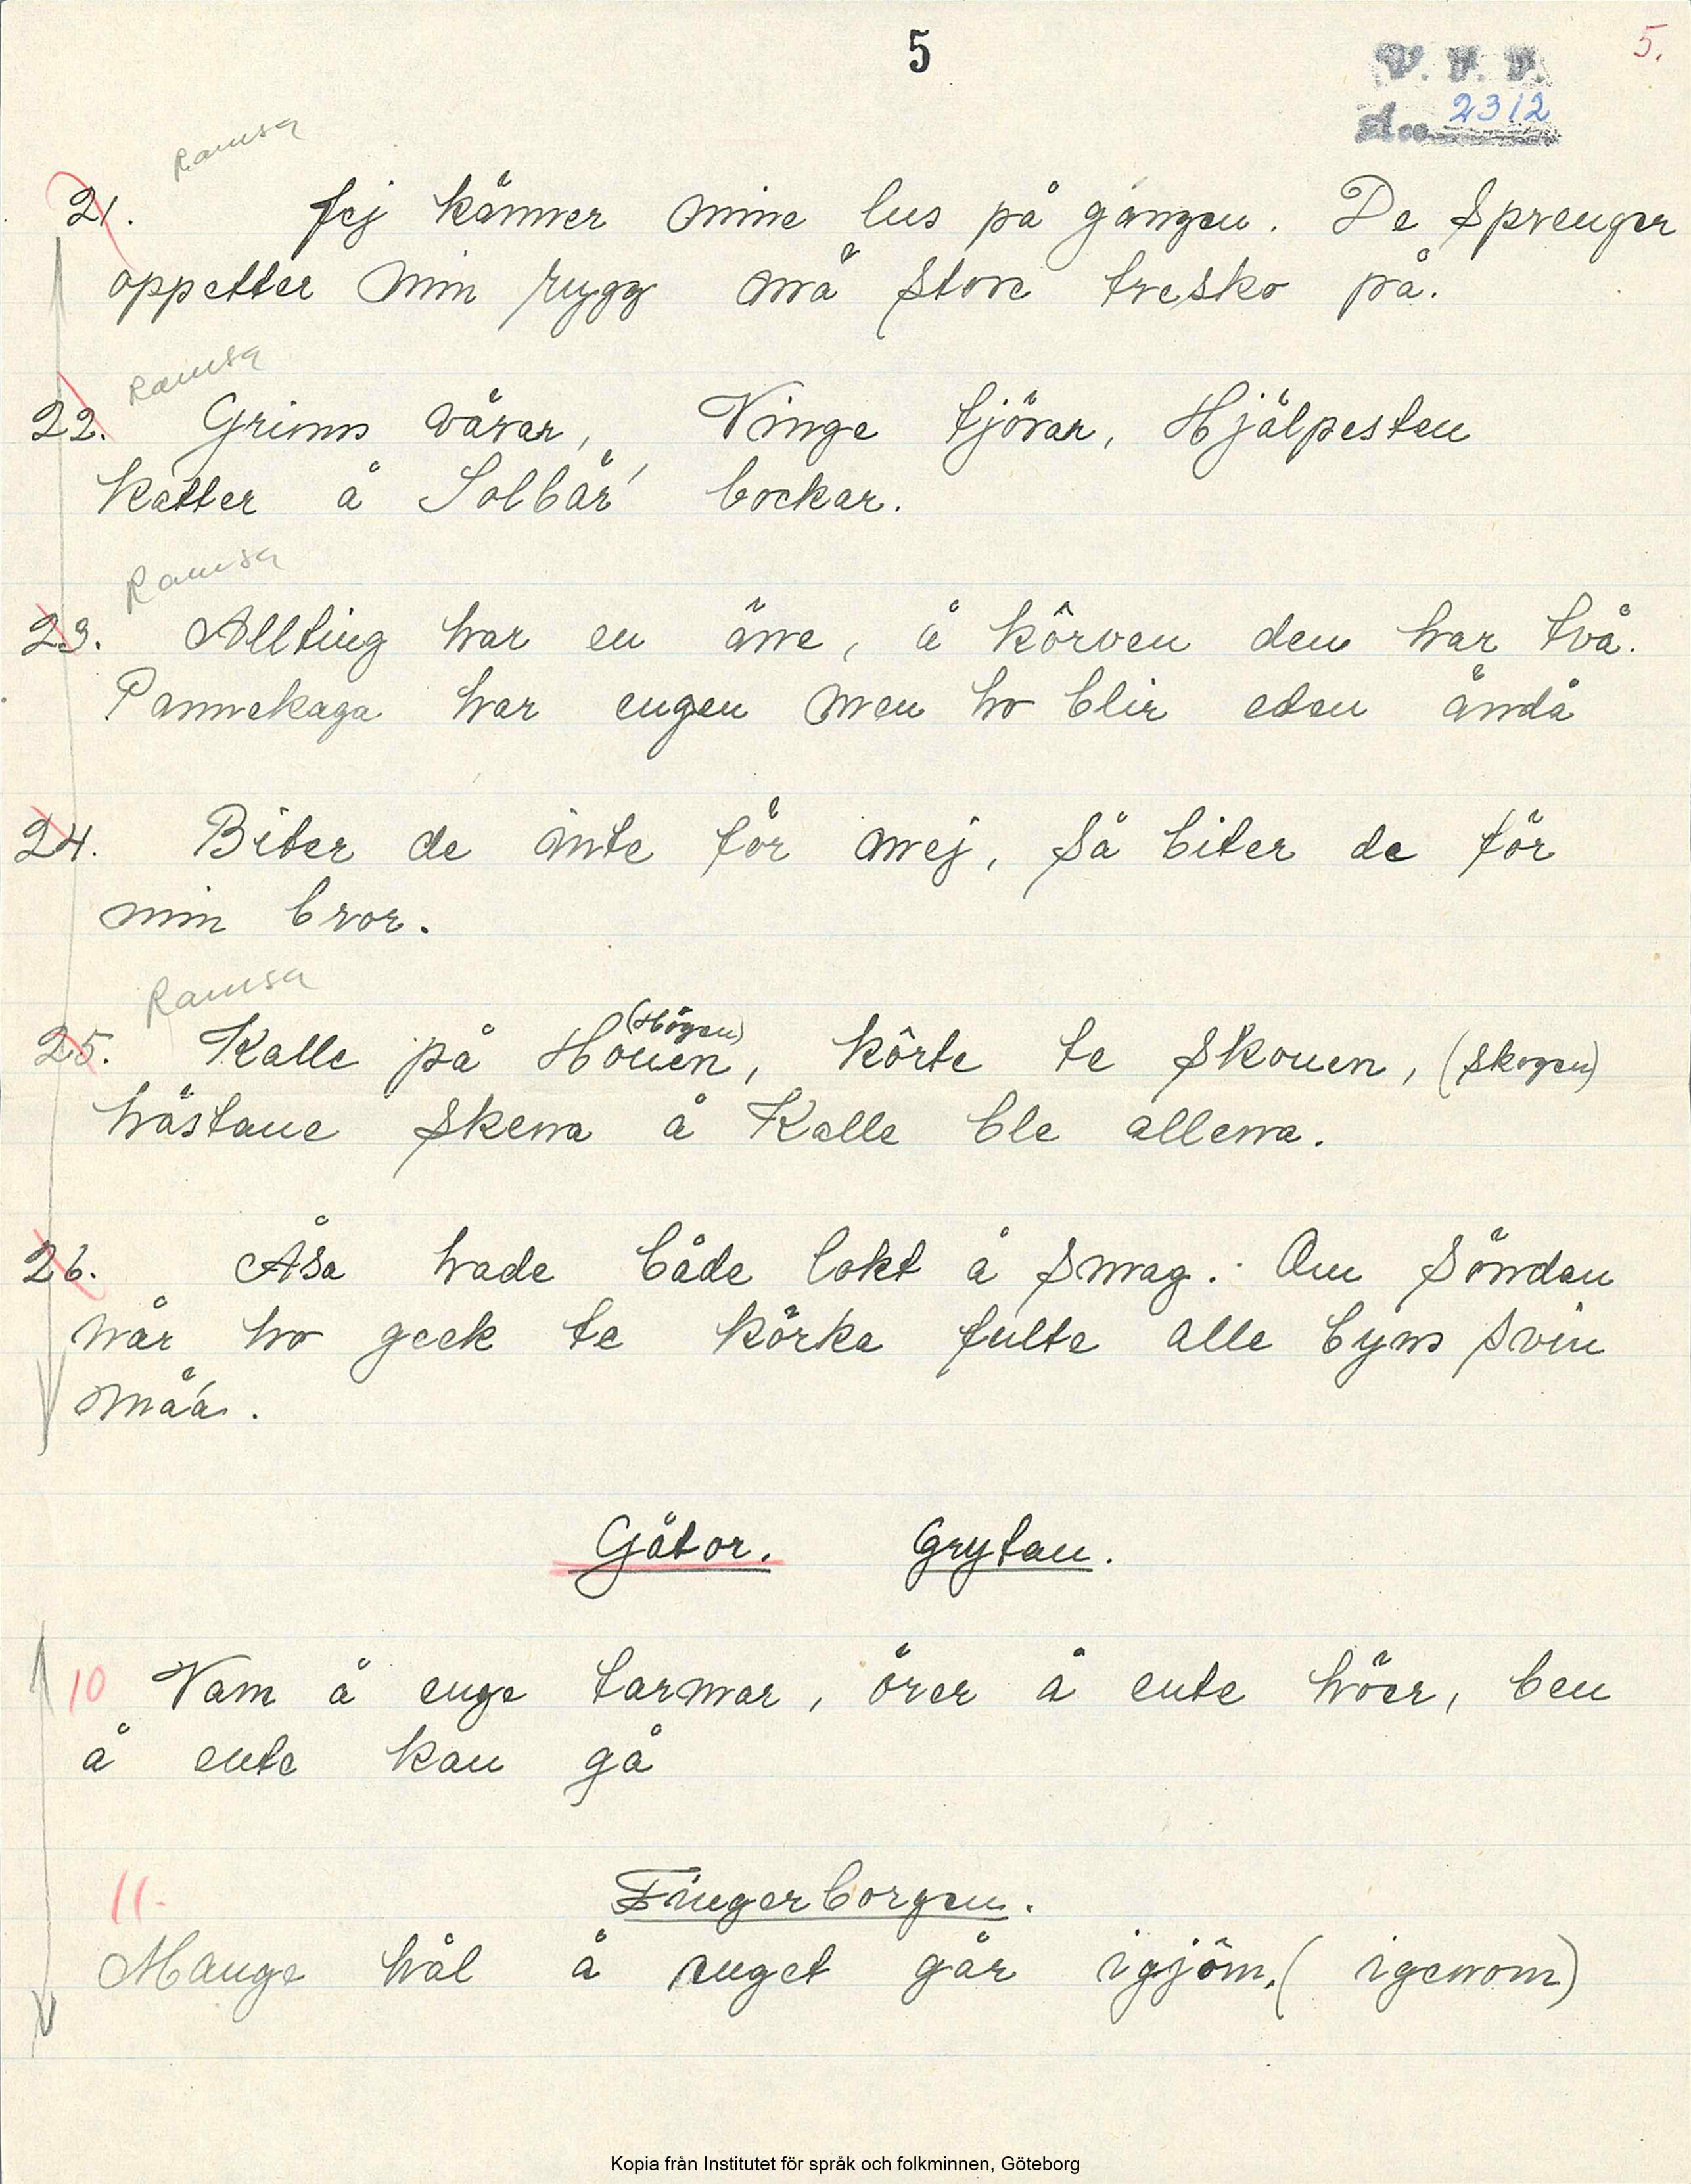 5
5.
V. F. F.
2312
Ramsa
21. Jej känner mine lus på gången. De sprenger
oppetter min rygg må store tresko på.
Ramsa
22. Grimns vårar, Vinge tjörar, Hjälpesten
katter å Solbår bockar.
Ramsa
23. Allting har en äne, å körven den har två.
Pannekaga har engen men ho blir eden ändå
24. Biter de inte för mej, så biter de för
min bror.
Ramsa
(Högen)
25. Kalle på Houen, körte te skouen, (skogen)
hästane skena å Kalle ble allena.
26. Åsa hade både lokt å smag. Om söndan
når ho geck te körka fulte alle byns svin
måå.
Gåtor. Grytan.
10 Vam å enge tarmar, örer å ente höer, ben
å ente kan gå
11.
Fingerborgen.
Mange hål å enget går igjöm, (igenom)
Kopia från Institutet för språk och folkminnen, Göteborg